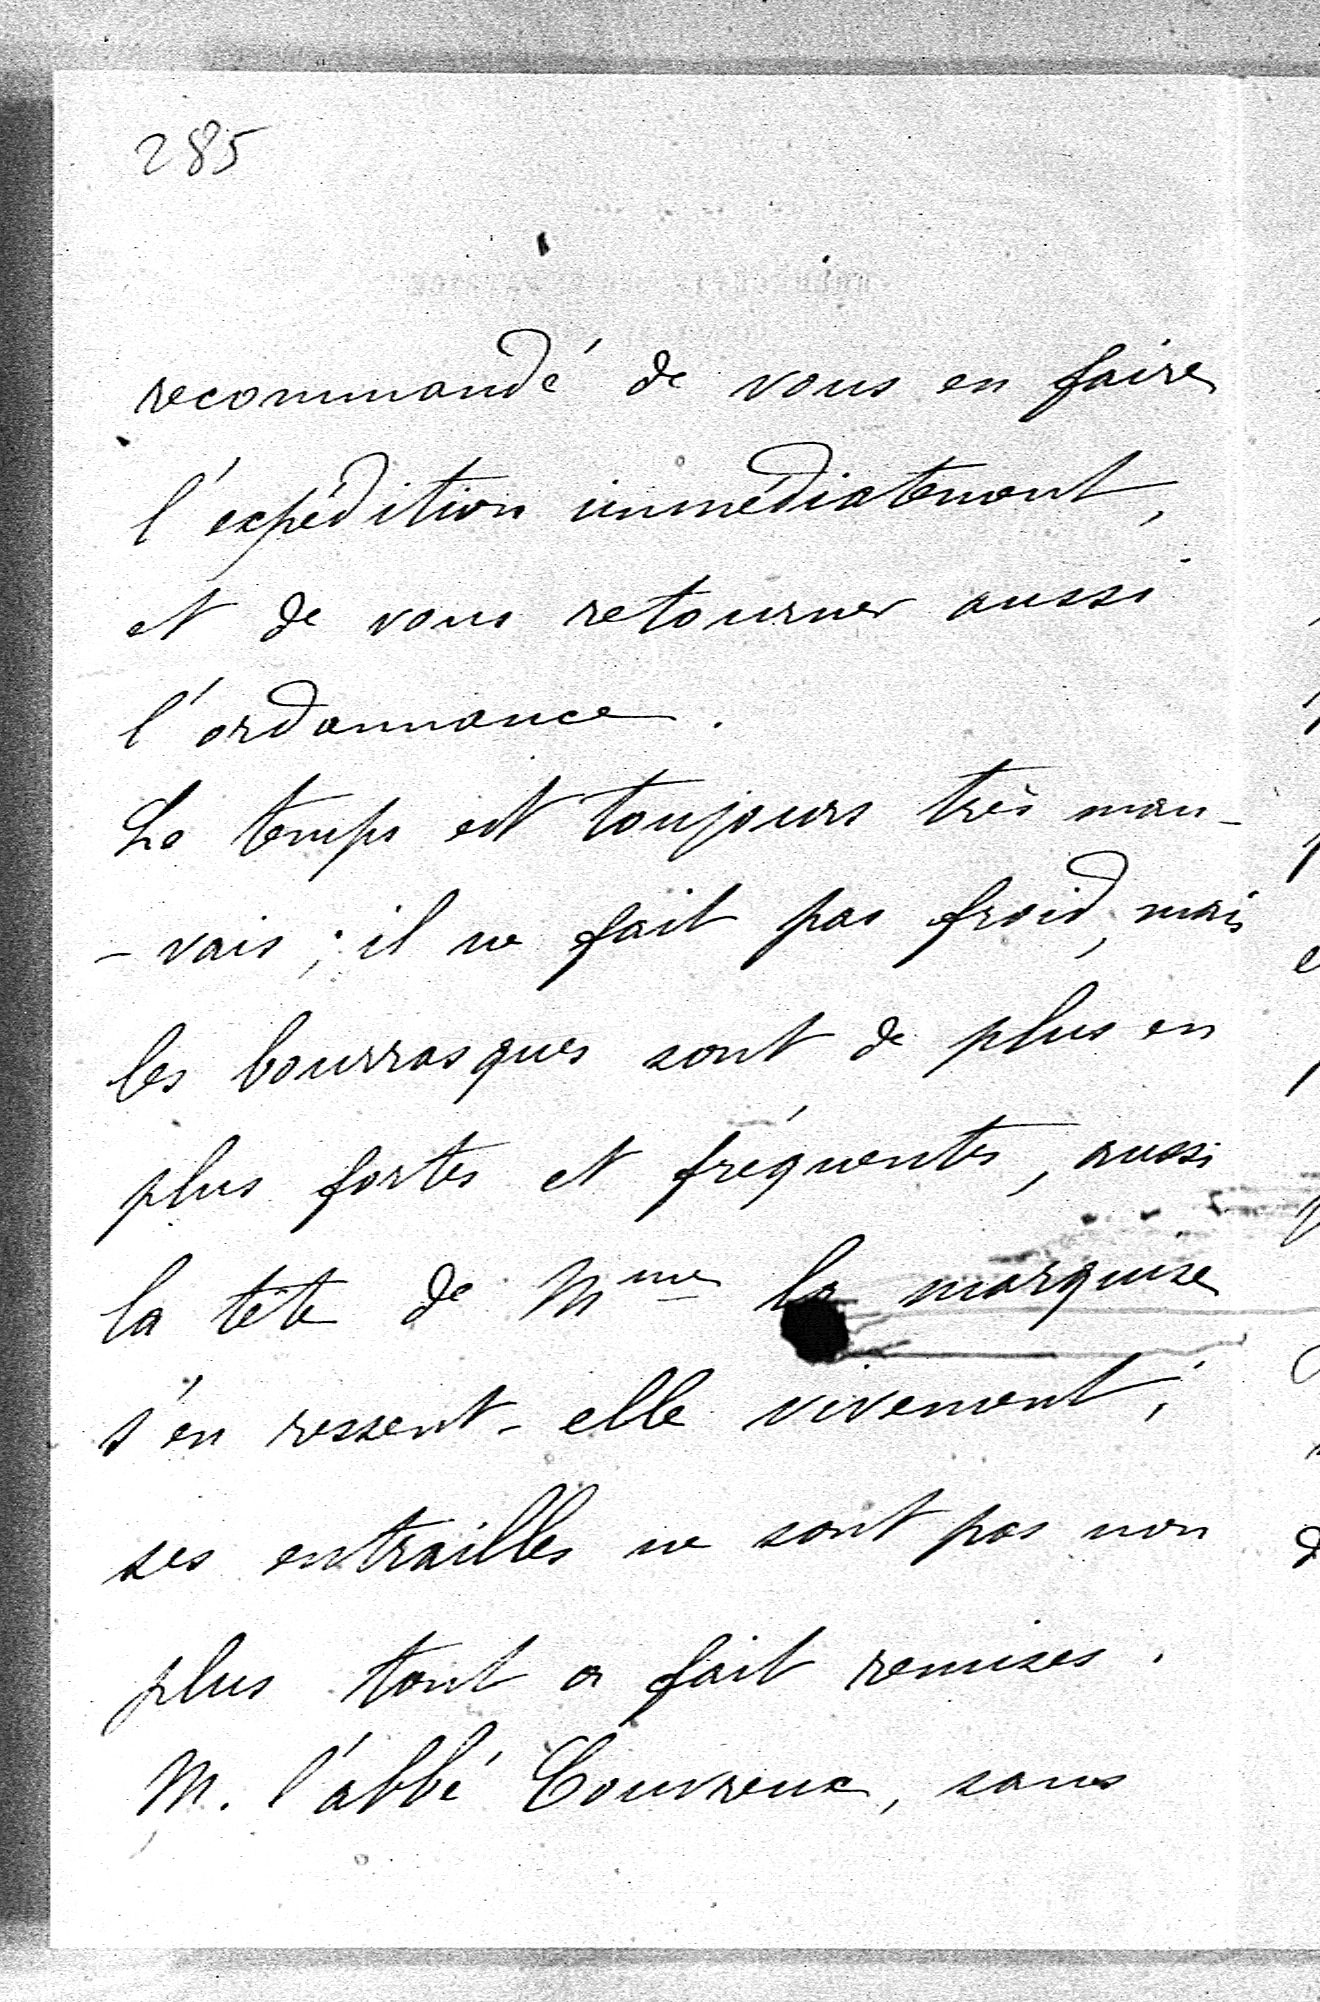 285
recommandé de vous en faire
l'expédition immédiatement,
et de vous retourner aussi
l'ordonnance.
Le temps est toujours très mau-
-vais ; il ne fait pas froid, mais
les bourrasques sont de plus en
plus fortes et fréquentes, aussi
la tête de Mme la marquise
s'en ressent-elle vivement ;
ses entrailles ne sont pas non
plus tout a fait remises.
M. l'abbé Couvreux, sans